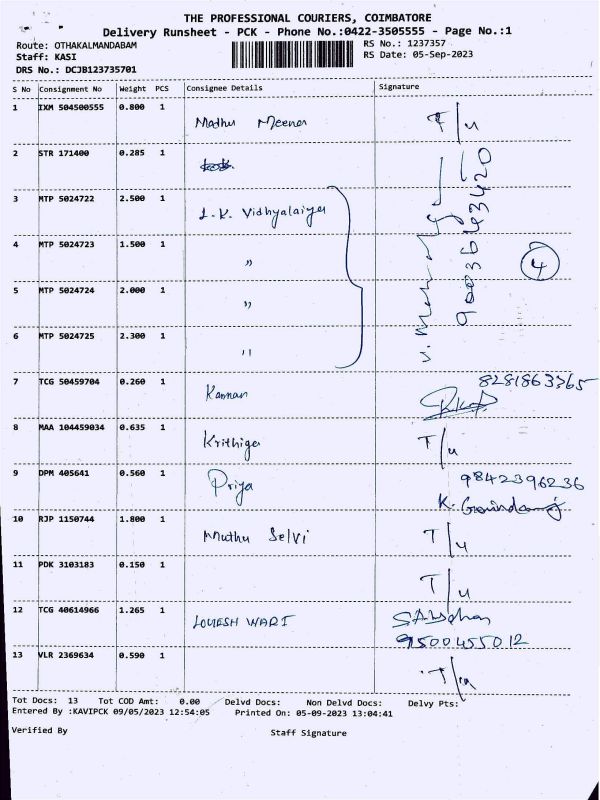 THE PROFESSIONAL COURIERS, COIMBATORE
Delivery Runsheet - PCK - Phone No.:0422-3505555 - Page No.:1
Route: OTHAKALMANDABAM
RS No.: 1237357
Staff: KASI
RS Date: 05-Sep-2023
DRS No.: DCJB123735701
S No Consignment No Weight PCS Consignee Details Signature
1 IXM 504500555 0.800 1 Madhu Meena T/u
2 STR 171400 0.285 1
3 MTP 5024722 2.500 1 L.K. Vidhyalaiya
4 MTP 5024723 1.500 1 " 4
5 MTP 5024724 2.000 1 "
6 MTP 5024725 2.300 1 "
7 TCG 50459704 0.260 1 Kannan 8281863365
8 MAA 104459034 0.635 1 Krithiga T/u
9 DPM 405641 0.560 1 Priya 9842396236
K. Govindaraj
10 RJP 1150744 1.800 1 Muthu Selvi T/u
11 PDK 3103183 0.150 1 T/u
12 TCG 40614966 1.265 1 LOGESH WARI
9500455012
13 VLR 2369634 0.590 1 T/u
Tot Docs: 13 Tot COD Amt: 0.00 Delvd Docs: Non Delvd Docs: Delvy Pts:
Entered By :KAVIPCK 09/05/2023 12:54:05 Printed On: 05-09-2023 13:04:41
Verified By Staff Signature